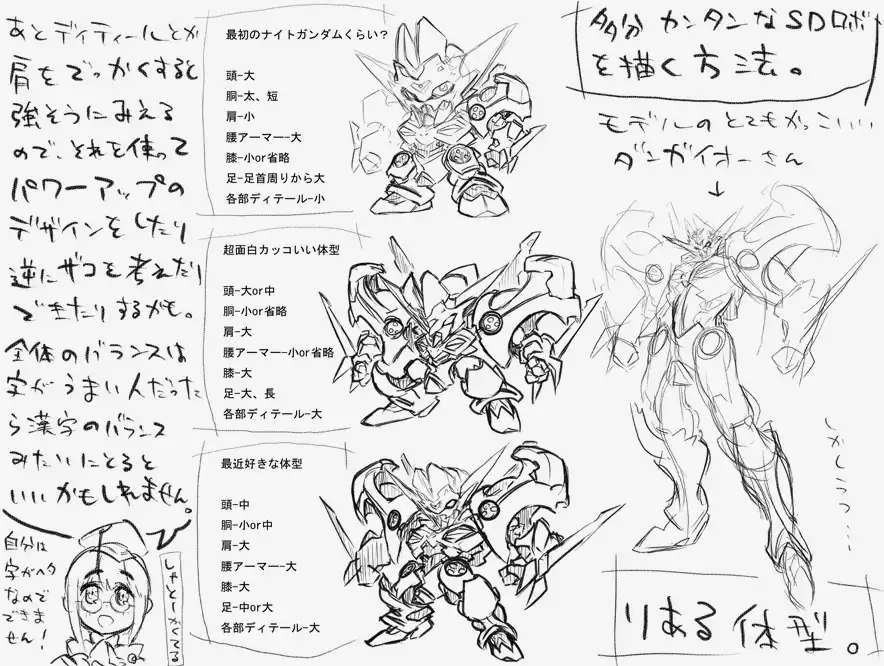 多分 カンタンなSDロボ
を描く方法。
モデルの とてもかっこいい
ダンガイオーさん
↓
りある体型。
最初のナイトガンダムくらい?
頭-大
胴-太、短
肩-小
腰アーマー-大
膝-小or省略
足-足首周りから大
各部ディテール-小
超面白カッコいい体型
頭-大or中
胴-小or省略
肩-大
腰アーマー-小or省略
膝-大
足-大、長
各部ディテール-大
最近好きな体型
頭-中
胴-小or中
肩-大
腰アーマー-大
膝-大
足-中or大
各部ディテール-大
あとディティールとか
肩をでっかくすると
強そうにみえる
ので、それを使って
パワーアップの
デザインをしたり
逆にザコを考えたり
できたりするかも。
全体のバランスは
字がうまい人だった
ら漢字のバランス
みたいにとると
いいかもしれません。
自分は
字がヘタ
なので
できま
せん!